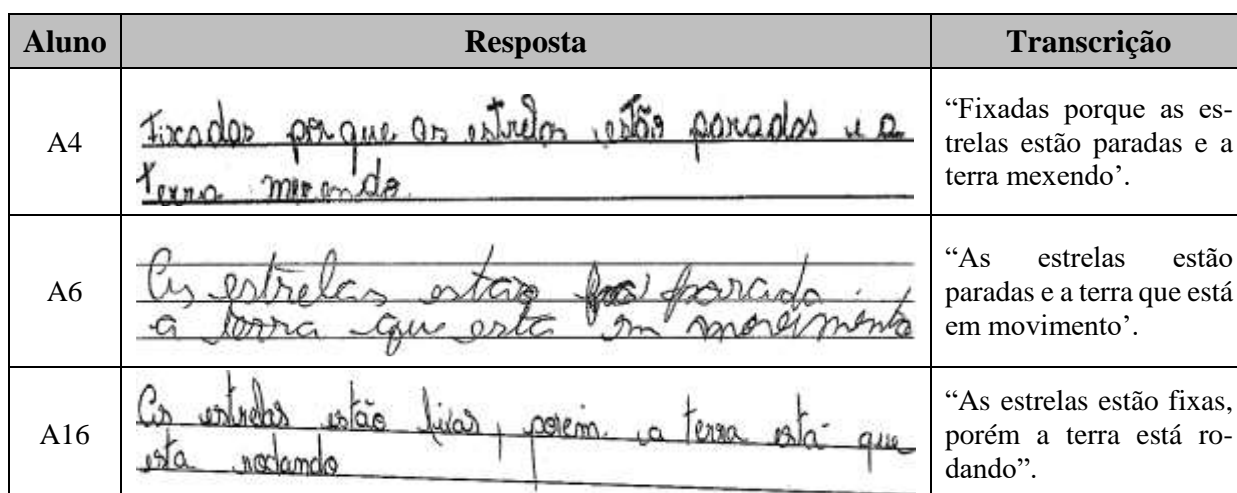 Aluno Resposta Transcrição
A4
Fixadas por que as estrelas estão paradas e a
terra mexendo.
“Fixadas porque as es-
trelas estão paradas e a
terra mexendo’.
A6
As estrelas estão parada.
a terra que esta em movimento
“As estrelas estão
paradas e a terra que está
em movimento’.
A16
As estrelas estão fixas, porém a terra está que
esta rodando
“As estrelas estão fixas,
porém a terra está ro-
dando”.